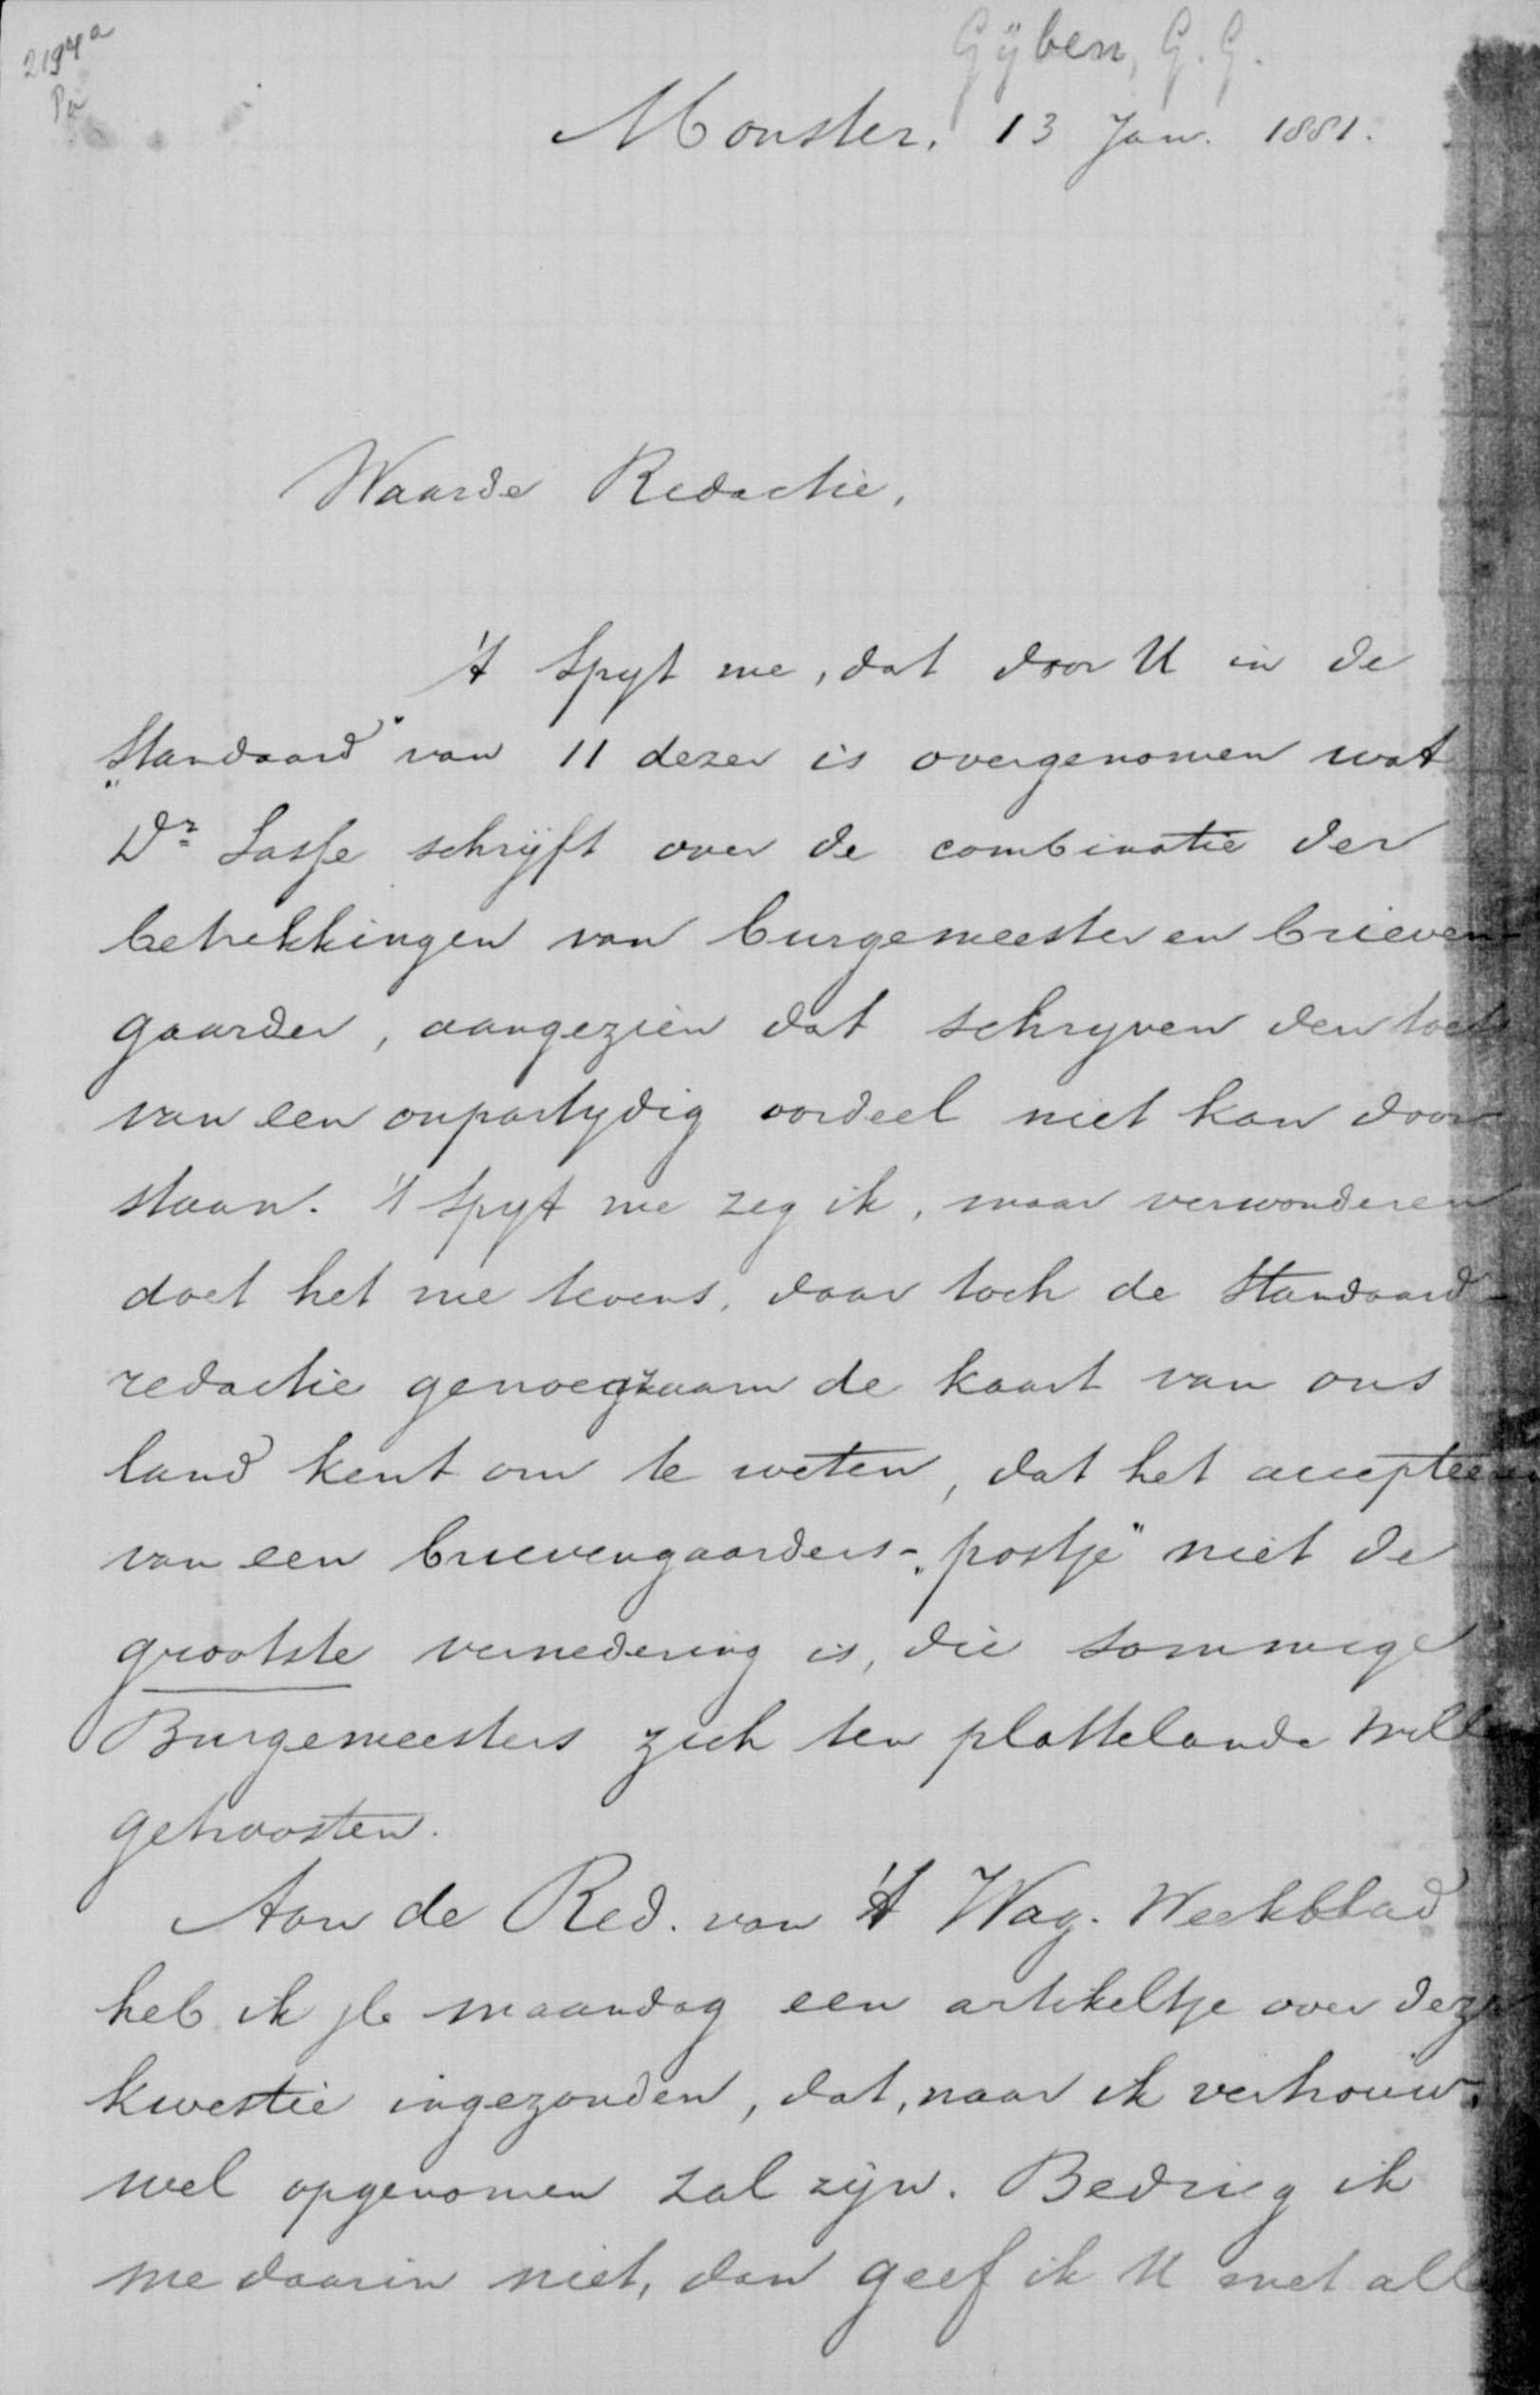 2194a
Gijben, G. G.
Monster, 13 Jan. 1881.
Waarde Redactie,
't Spyt me, dat door U in de
„Standaard" van 11 dezer is overgenomen wat
Dr Sasse schrijft over de combinatie der
betrekkingen van burgemeester en brieven-
gaarder, aangezien dat schryven den toets
van een onpartydig oordeel niet kan door
staan. 't Spyt me zeg ik, maar verwonderen
doet het me tevens, daar toch de Standaard-
redactie genoegzaam de kaart van ons
land kent om te weten, dat het accepteeren
van een brievengaarders-„postje" niet de
grootste vernedering is, die sommige
Burgemeesters zich ten plattelande willen
getroosten.
Aan de Red. van 't Wag. Weekblad
heb ik jl. maandag een artikeltje over deze
kwestie ingezonden, dat, naar ik vertrouw,
wel opgenomen zal zijn. Bedrieg ik
me daarin niet, dan geef ik U met alle